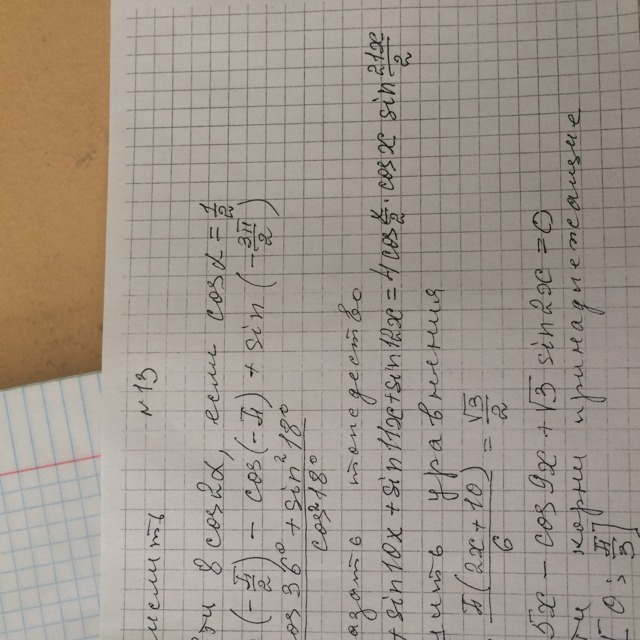 №13
ислить
ти 8 cos2α, если cosα = 1/2
(-π/2) - cos(-π) + sin(-3π/2)
cos 36° + sin² 18° / cos² 18°
азать тождество
+ sin10x + sin11x + sin12x = 4 cos x/2 · cos x sin 21x/2
ить уравнения
π(2x+10)/6 = √3/2
5x - cos 9x + √3 sin 2x = 0
ти корни принадлежащие
[0; π/3]